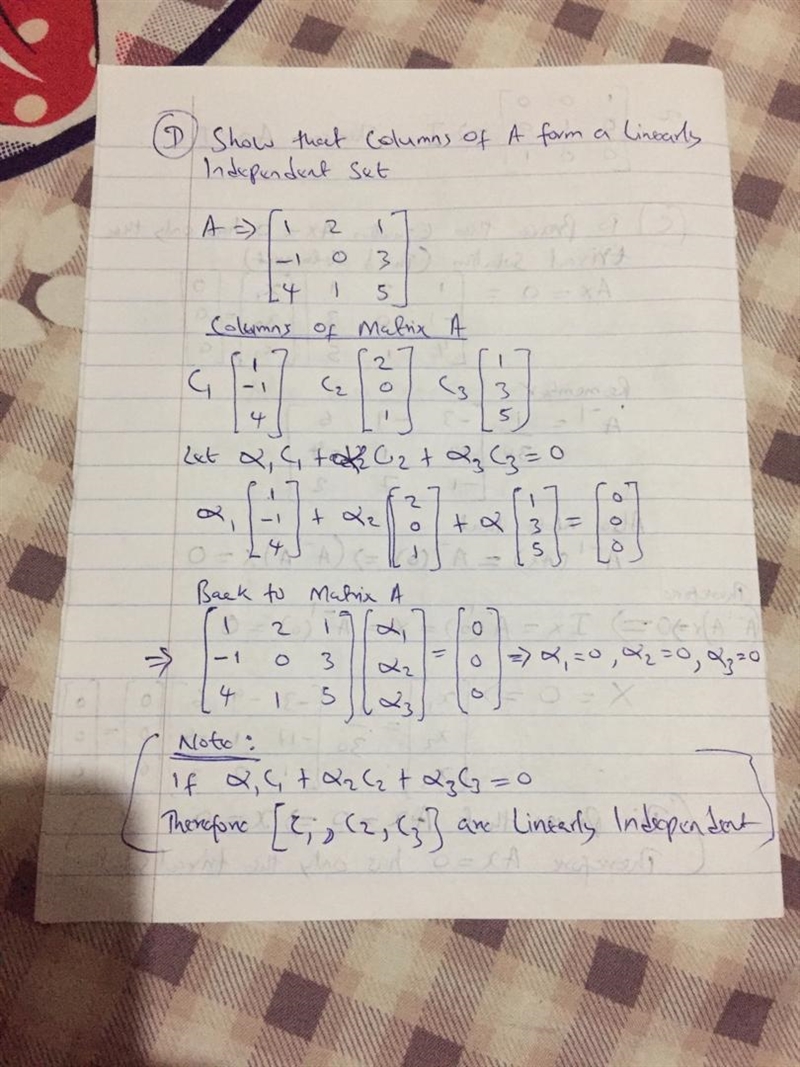 D Show that Columns of A form a Linearly
Independent Set
A => [1 2 1
-1 0 3
4 1 5]
Columns of Matrix A
C₁ [1 -1 4] C₂ [2 0 1] C₃ [1 3 5]
Let α₁C₁ + α₂C₂ + α₃C₃ = 0
α₁ [1 -1 4] + α₂ [2 0 1] + α [1 3 5] = [0 0 0]
Back to Matrix A
=> [1 2 1
-1 0 3
4 1 5] [α₁ α₂ α₃] = [0 0 0] => α₁=0, α₂=0, α₃=0
Note:
If α₁C₁ + α₂C₂ + α₃C₃ = 0
Therefore [C₁, C₂, C₃} are Linearly Independent